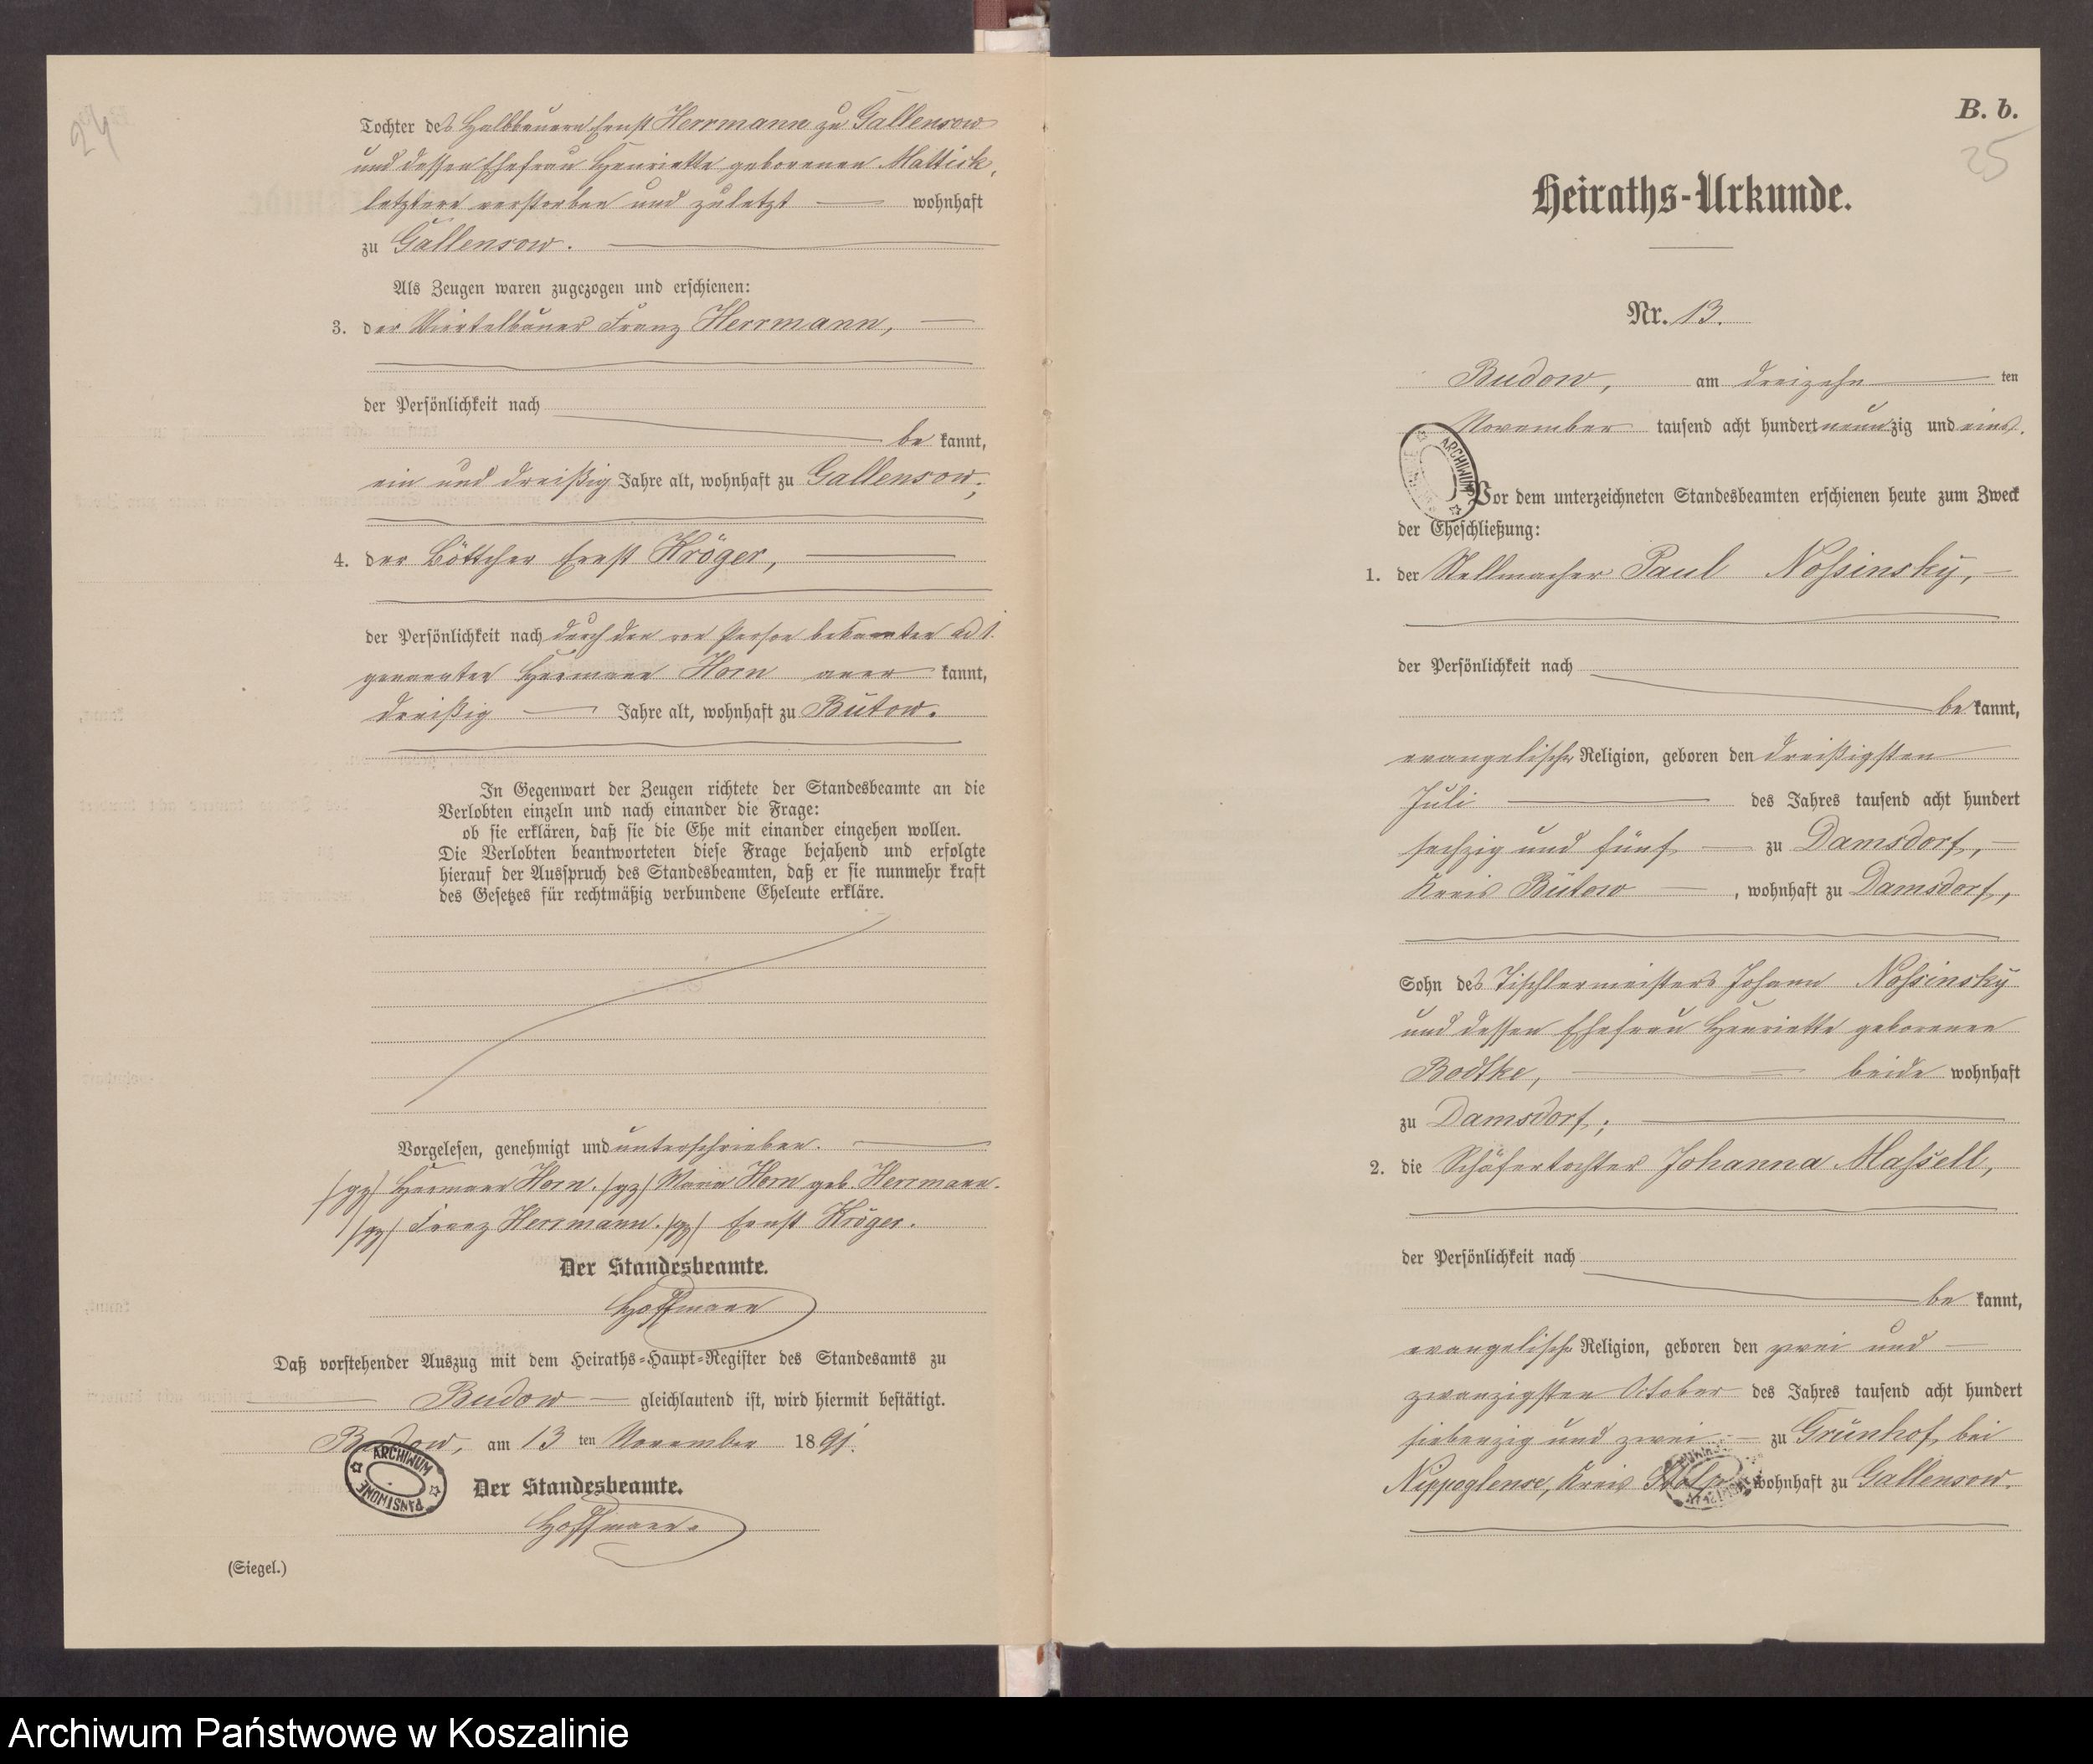 24
Tochter des Halbbauern Ernst Herrmann zu Gallensow
und dessen Ehefrau Henriette geborenen Mattick,
letztere verstorben und zuletzt — wohnhaft
zu Gallensow.
Als Zeugen waren zugezogen und erschienen:
3. der Viertelbauer Franz Herrmann,
der Persönlichkeit nach
be kannt,
ein und dreißig Jahre alt, wohnhaft zu Gallensow;
4. der Böttcher Ernst Kröger,
der Persönlichkeit nach durch den von Person bekannten ad 1.
genannten Hermann Horn aner kannt,
dreißig — Jahre alt, wohnhaft zu Bütow.
In Gegenwart der Zeugen richtete der Standesbeamte an die
Verlobten einzeln und nach einander die Frage:
ob sie erklären, daß sie die Ehe mit einander eingehen wollen.
Die Verlobten beantworteten diese Frage bejahend und erfolgte
hierauf der Ausspruch des Standesbeamten, daß er sie nunmehr kraft
des Gesetzes für rechtmäßig verbundene Eheleute erkläre.
Vorgelesen, genehmigt und unterschrieben.
/gz/ Hermann Horn. /gz/ Maria Horn geb. Herrmann.
/gz/ Franz Herrmann. /gz/ Ernst Kröger.
Der Standesbeamte.
Hoffmann
Daß vorstehender Auszug mit dem Heiraths-Haupt-Register des Standesamts zu
Budow — gleichlautend ist, wird hiermit bestätigt.
Budow, am 13 ten November 1891.
ARCHIWUM PAŃSTWOWE
Der Standesbeamte.
Hoffmann.
(Siegel.)
B. b.
25
Heiraths-Urkunde.
Nr. 13.
Budow, am dreizehn ten
November tausend acht hundert neunzig und eins.
ARCHIWUM
Vor dem unterzeichneten Standesbeamten erschienen heute zum Zweck
der Eheschließung:
1. der Stellmacher Paul Noßinsky,
der Persönlichkeit nach
be kannt,
evangelischer Religion, geboren den dreißigsten
Juli — des Jahres tausend acht hundert
sechzig und fünf — zu Damsdorf,
Kreis Bütow —, wohnhaft zu Damsdorf,
Sohn des Tischlermeisters Johann Noßinsky
und dessen Ehefrau Henriette geborenen
Bodtke, — beide wohnhaft
zu Damsdorf;
2. die Schäfertochter Johanna Maßell,
der Persönlichkeit nach
be kannt,
evangelischer Religion, geboren den zwei und
zwanzigsten October des Jahres tausend acht hundert
siebenzig und zwei — zu Grünhof, bei
Nippoglense, Kreis Stolp, wohnhaft zu Gallensow.
Archiwum Państwowe w Koszalinie